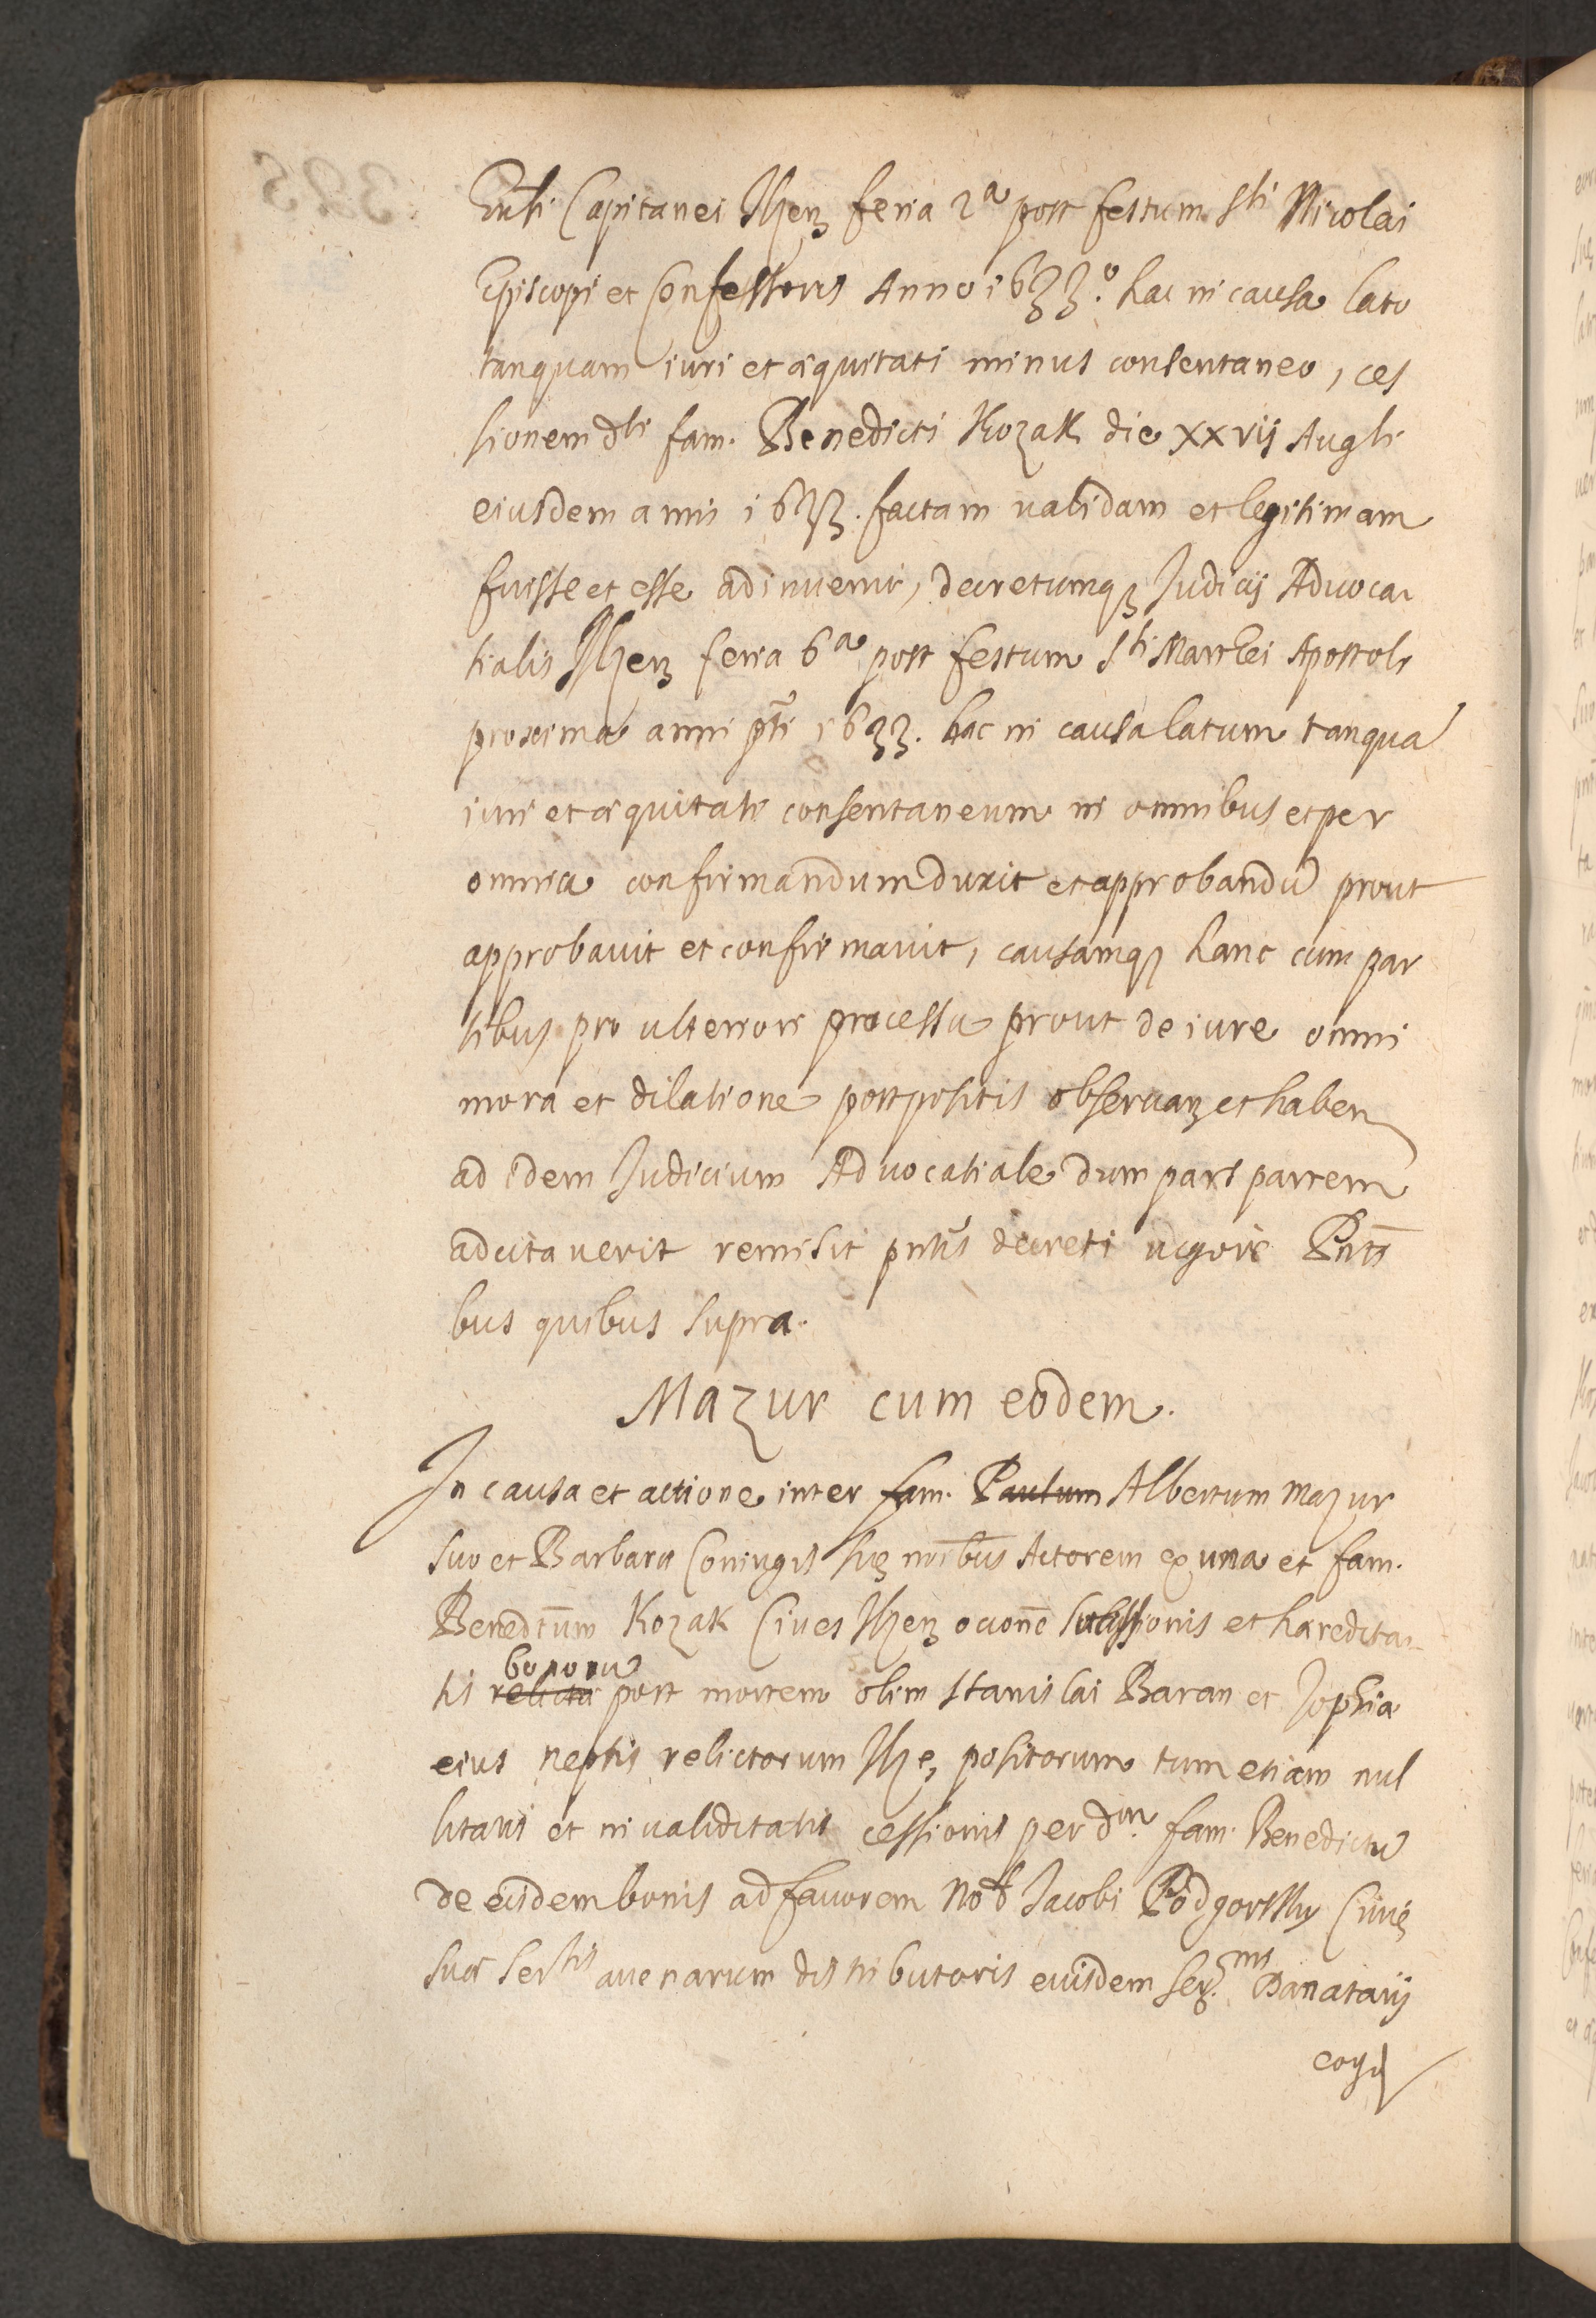 Eußi Capitanei Ilzen feria 2a post festum Sti Nicolai
Episcopi et Confessoris Anno 1633.o hac in causa lato
tanquam iuri et æquitati minus consentaneo, ces
sionem dti fam. Benedicti Kozak die xxvij Augti
eiusdem anni 1633. factam validam et legitimam
fuisse et esse adinvenit, decretumq3 Judicij Advoca
tialis Ilzen feria 6a post festum Sti Matthei Apostoli
proxima anni pti 1633. hac in causa latum tanquā
iuri et æquitati consentaneum in omnibus et per
omnia confirmandum duxit et approbandū prout
approbavit et confirmavit, causamq3 hanc cum par
tibus pro ulteriori processu prout de iure omni
mora et dilatione postpositis observan et haben
ad idem Judicium Advocatiale dum pars partem
adcitaverit remisit pntis decreti vigore Pntī
bus quibus supra.
Mazur cum eodem.
In causa et actione inter fam. Paulum Albertum Mazur
suo et Barbara Coniugis suæ noībus Actorem ex una et fam.
Benedtūm Kozak Cives Ilzen ocionē successionis et hæredita
bonorū
tis relicta post mortem olim Stanislai Baran et Zophia
eius neptis relictorum Ilze positorum tum etiam nul
litatis et invaliditatis cessionis per dm. fam. Benedictū
de eisdem bonis ad favorem Nob Jacobi Podgorsky Civis
suæ Sertis avenarum distributoris eiusdem Ser.mis Danatarij
325